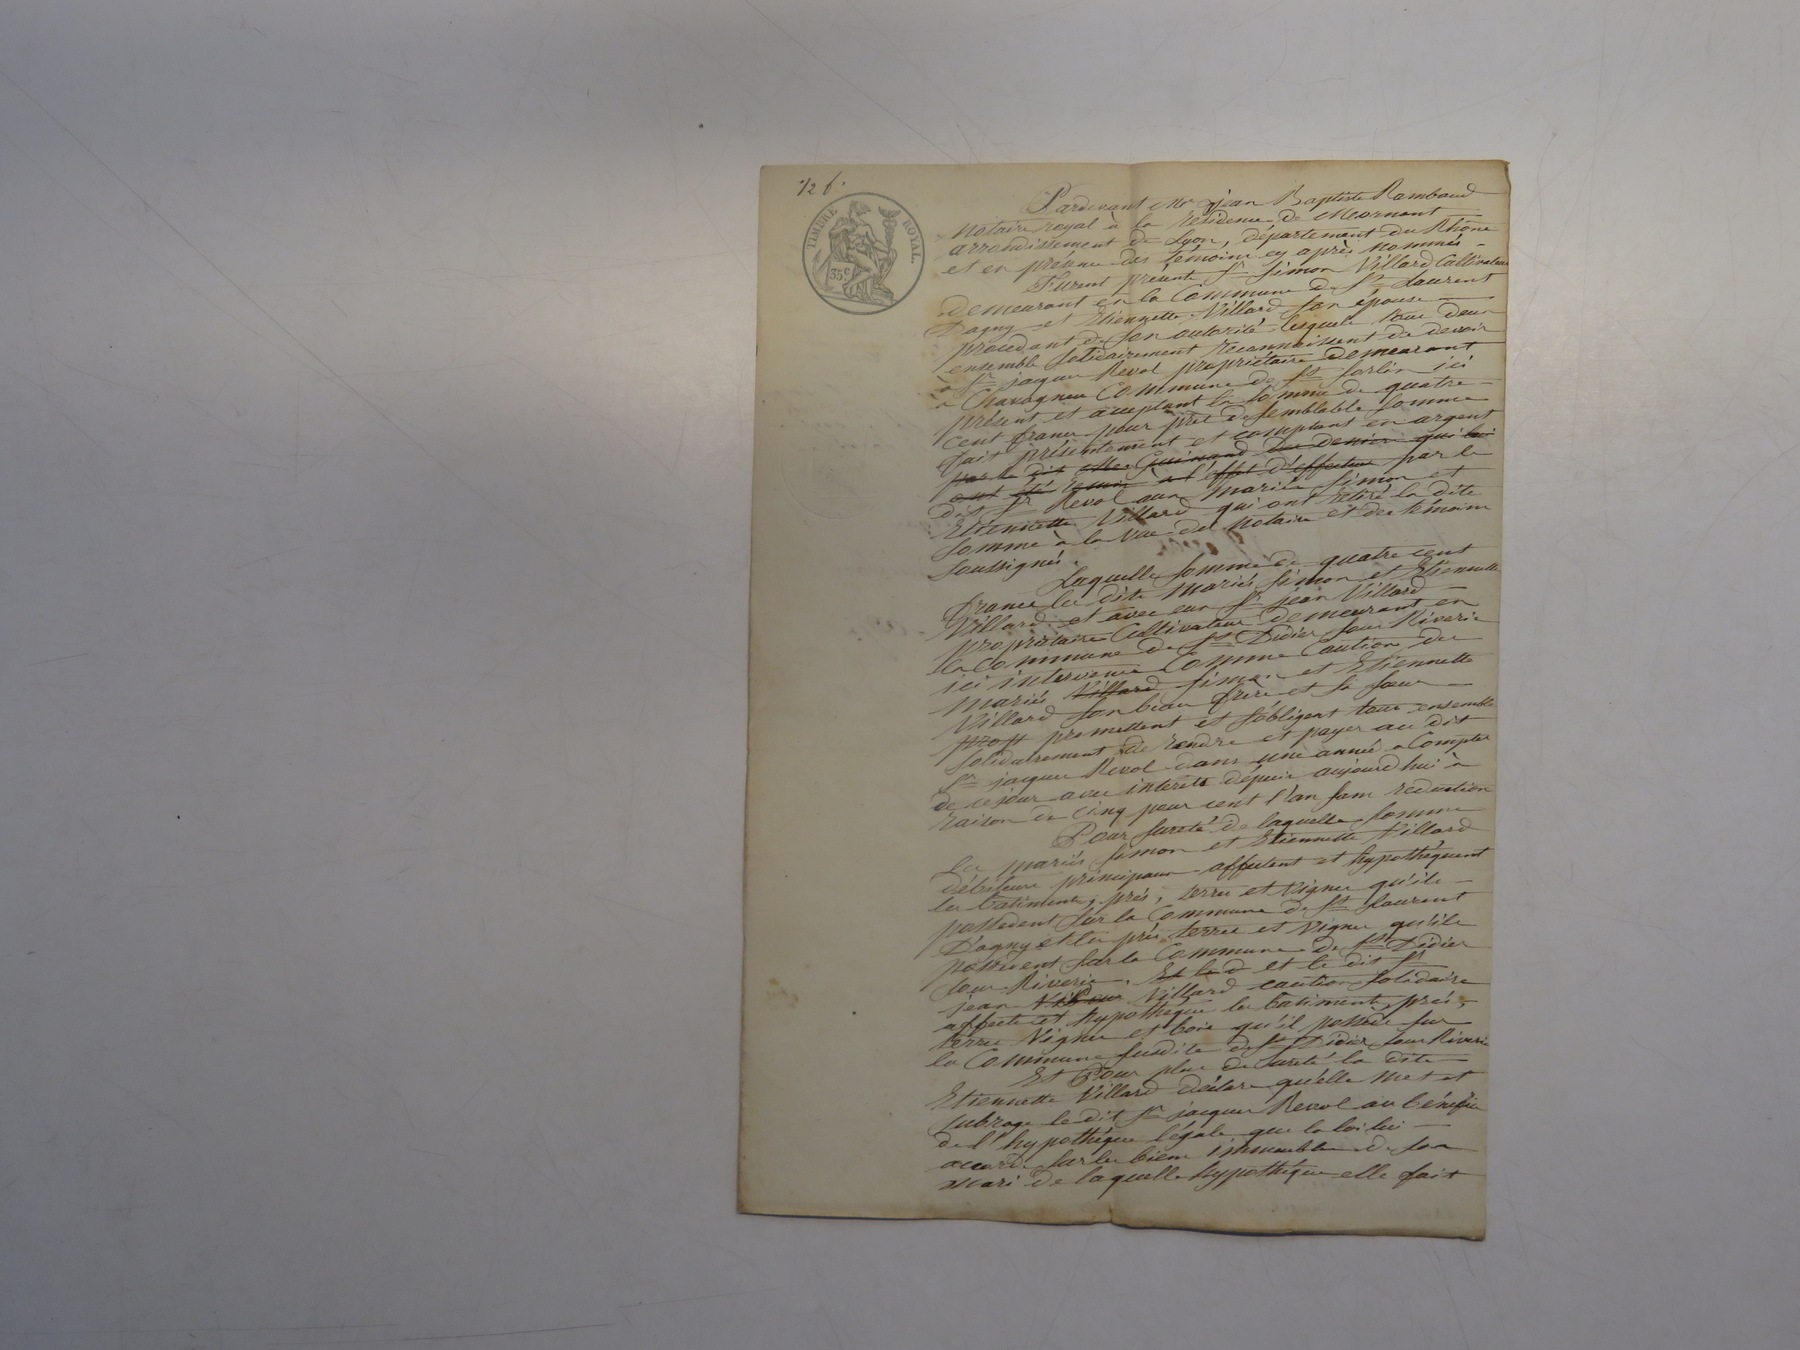 72 6.
TIMBRE ROYAL.
35c
Pardevant Me jean Baptiste Rambaud
notaire royal à la résidence de Mornant
arrondissement de Lyon, département du Rhône
et en présence des témoins cy après nommés
Furent présents Sr Simon Villard Cultivateur
demeurant en la Commune de St Laurent
Dagny et Etiennette Villard son épouse
procedant de son autorité lesquels tous deux
ensemble solidairement reconnaissent devoir
à Sr jacques Revol propriétaire demeurant
à Chavagneux Commune de St Sorlin ici
présent et acceptant la somme de quatre
cent francs pour prêt de semblable somme
fait présentement et comptant en argent
par le dit Me Guinand des deniers qui lui
ont été remis à l'effet d'effectuer par le
dit Sr Revol aux mariés Simon et
Etiennette Villard qui ont retiré la dite
somme à la vue du notaire et des témoins
soussignés.
Laquelle somme de quatre cent
francs les dits mariés Simon et Etiennette
Villard et avec eux Sr jean Villard
propriétaire Cultivateur demeurant en
la Commune de St Didier sous Riverie
ici intervenu Comme Caution des
mariés Villard Simon et Etiennette
Villard son beau frère et sa soeur
promettent et s'obligent tous ensemble
solidairement de rendre et payer au dit
Sr jacques Revol dans une année a Compter
de ce jour avec interets dépuis aujourd'hui à
raison de cinq pour cent l'an sans reduction
Pour sureté de laquelle somme
les mariés Simon et Etiennette Villard
débiteurs principaux affectent et hypothéquent
les batiments, prés, terres et vignes qu'ils
possedent sur la Commune de St Laurent
D'agny et les prés terres et vignes qu'ils
possedent sur la Commune de St Didier
sous Riverie. Et le d et le dit Sr
jean Villard caution solidaire
affecte et hypothéque les batiments, prés,
terres vignes et bois qu'il possède sur
la Commune susdite de St Didier sous Riverie
Et Pour plus de sureté la dite
Etiennette Villard déclare qu'elle met et
subroge le dit Sr jacques Revol au bénéfice
de l'hypothéque légale que la loi lui
accorde sur les biens immeubles de son
mari de laquelle hypothéque elle fait